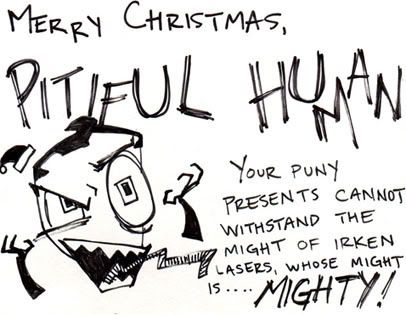 MERRY CHRISTMAS,
PITIFUL HUMAN
YOUR PUNY
PRESENTS CANNOT
WITHSTAND THE
MIGHT OF IRKEN
LASERS, WHOSE MIGHT
IS .... MIGHTY!